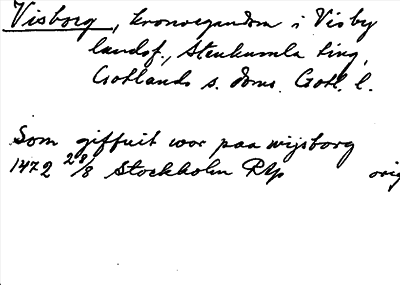 Visborg, kronoegendom i Visby
landsf., Stenkumla ting,
Gotlands s. doms. Gotl. l.
Som giffuit wor paa wijsborg
1472 28/8 Stockholm Rap orig